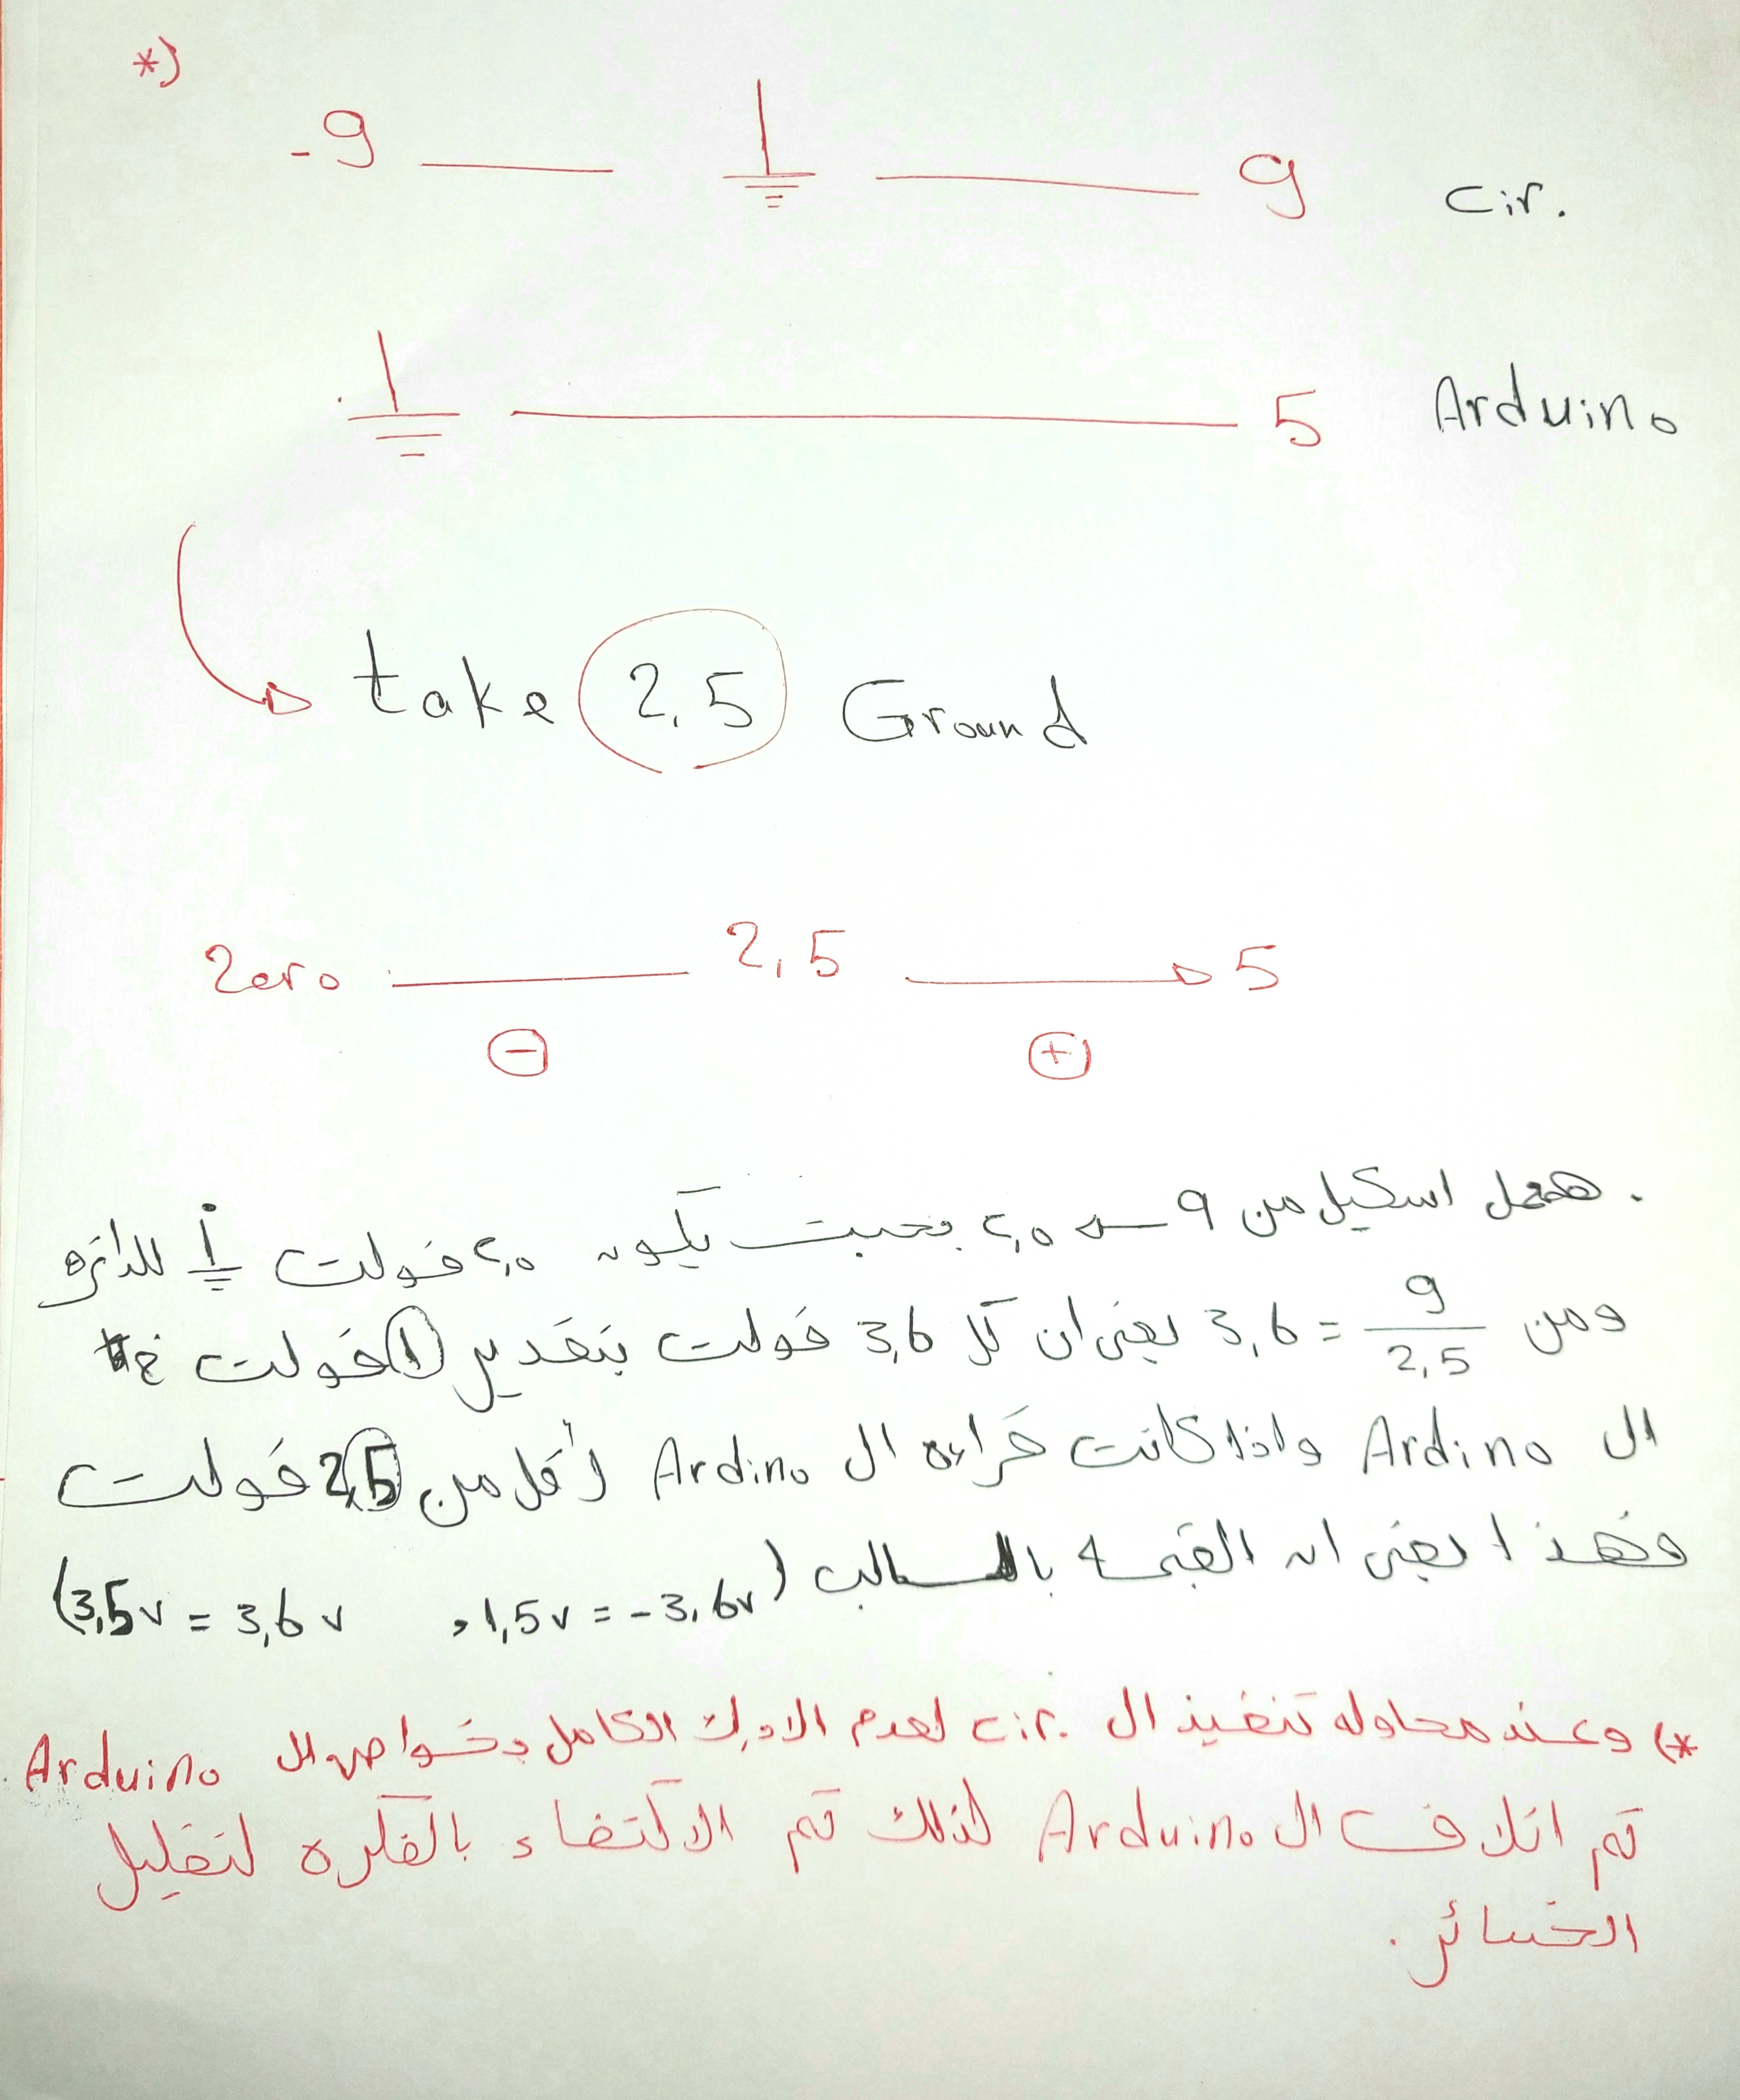 *)
-9 9 Cir.
5 Arduino
take 2,5 Ground
Zero 2,5 5
- +
. هعمل اسكيل من 9 ٢,٥ بحيث يكون ٢,٥ فولت للدائره
ومن 9/2,5 = 3,6 يعني ان كل 3,6 فولت بتقدير 1 فولت في
ال Ardino واذا كانت قراءه ال Ardino أقل من 2,5 فولت
فهذا يعني ان القيمه بالسالب (3,5v = 3,6v , 1,5v = -3,6v)
*) وعند محاوله تنفيذ ال cir. لعدم الادرك الكامل بخواص ال Arduino
تم اتلاف ال Arduino لذلك تم الاكتفاء بالفكره لتقليل
الخسائر.